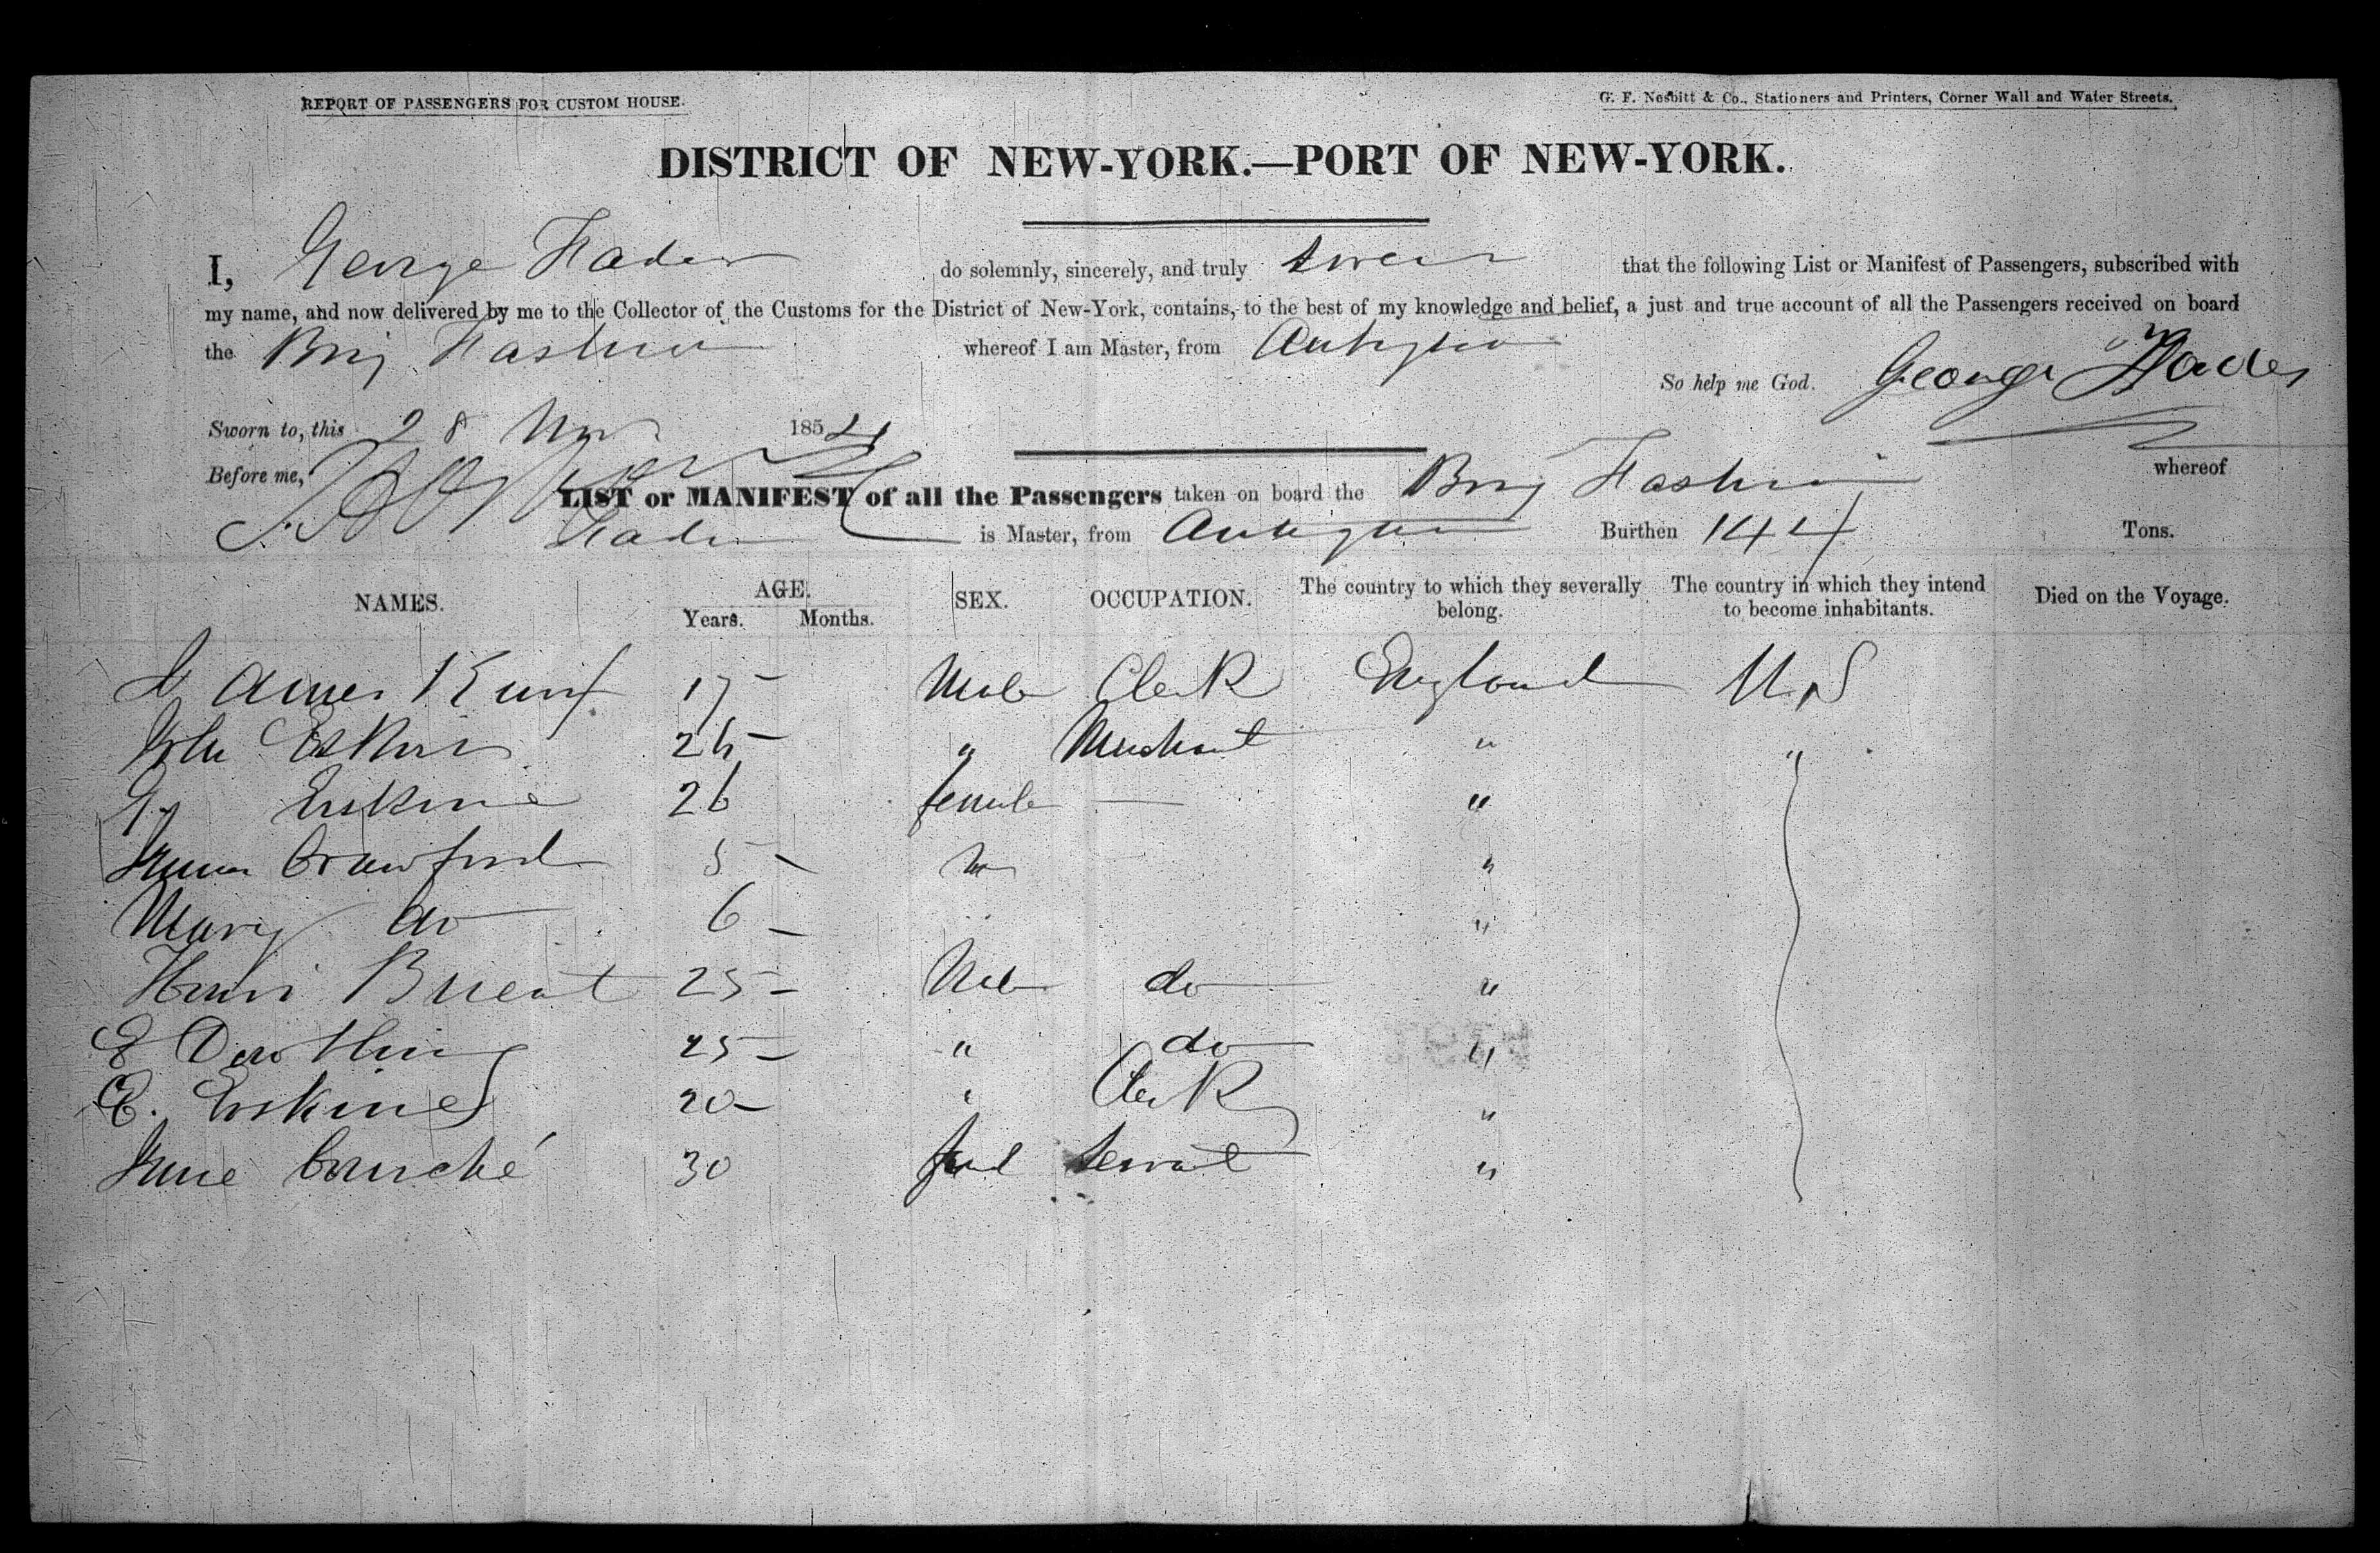 REPORT OF PASSENGERS FOR CUSTOM HOUSE.
G. F. Nesbitt & Co., Stationers and Printers, Corner Wall and Water Streets.
DISTRICT OF NEW-YORK.—PORT OF NEW-YORK.
I, George Fader do solemnly, sincerely, and truly swear that the following List or Manifest of Passengers, subscribed with
my name, and now delivered by me to the Collector of the Customs for the District of New-York, contains, to the best of my knowledge and belief, a just and true account of all the Passengers received on board
the Brig Fashion whereof I am Master, from Antigua
So help me God. George Fader
Sworn to, this 28 1854
Before me,
LIST or MANIFEST of all the Passengers taken on board the Brig Fashion whereof
Fader is Master, from Antigua Burthen 144 Tons.
NAMES. AGE. Years. Months. SEX. OCCUPATION. The country to which they severally belong. The country in which they intend to become inhabitants. Died on the Voyage.
James 17 Male Clerk England U.S
John Erskine 26 " Merchant " "
Erskine 26 female — "
Crawford 5 m "
Mary do 6 "
25 Male do "
E 25 " do "
E. Erskine 20 " Clerk "
Jane 30 fem Servant "